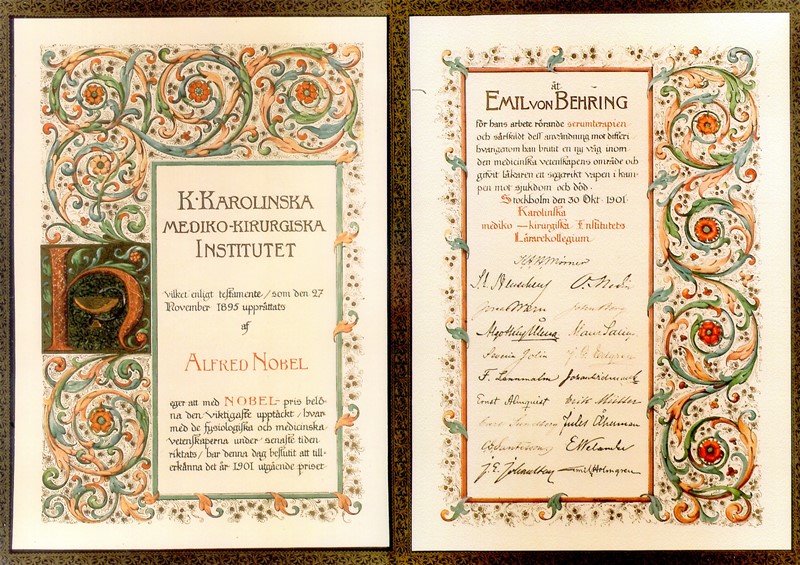 K. KAROLINSKA
MEDIKO-KIRURGISKA
INSTITUTET
vilket enligt testamente, som den 27
November 1895 upprättats
af
ALFRED NOBEL
eger att med NOBEL-pris belö-
na den viktigaste upptäckt, hvar-
med de fysiologiska och medicinska
vetenskaperna under senaste tiden
riktats, har denna dag beslutit att till-
erkänna det år 1901 utgående priset
åt
EMIL VON BEHRING
för hans arbete rörande serumterapien
och särskildt dess användning mot difteri
hvarigenom han brutit en ny väg inom
den medicinska vetenskapens område och
gifvit läkaren ett segerrikt vapen i kam-
pen mot sjukdom och död.
Stockholm den 30 Okt. 1901.
Karolinska
mediko-kirurgiska Institutets
Lärarekollegium.
K A H Mörner
John Berg
Algot Key-Åberg
Severin Jolin
F. Lennmalm
Ernst Almquist Erik Müller
Jules Åkerman
E Welander
J. E. Johansson Emil Holmgren